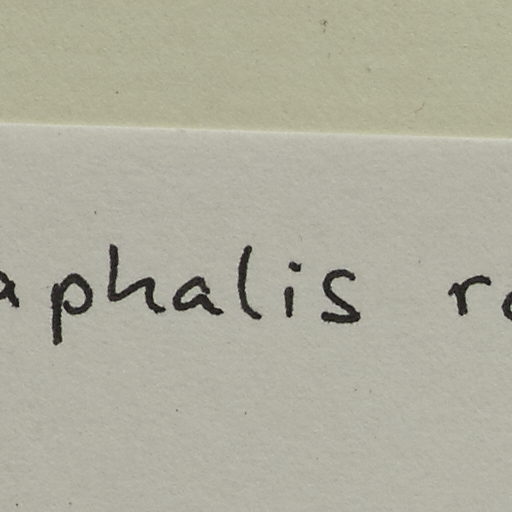 aphalis r